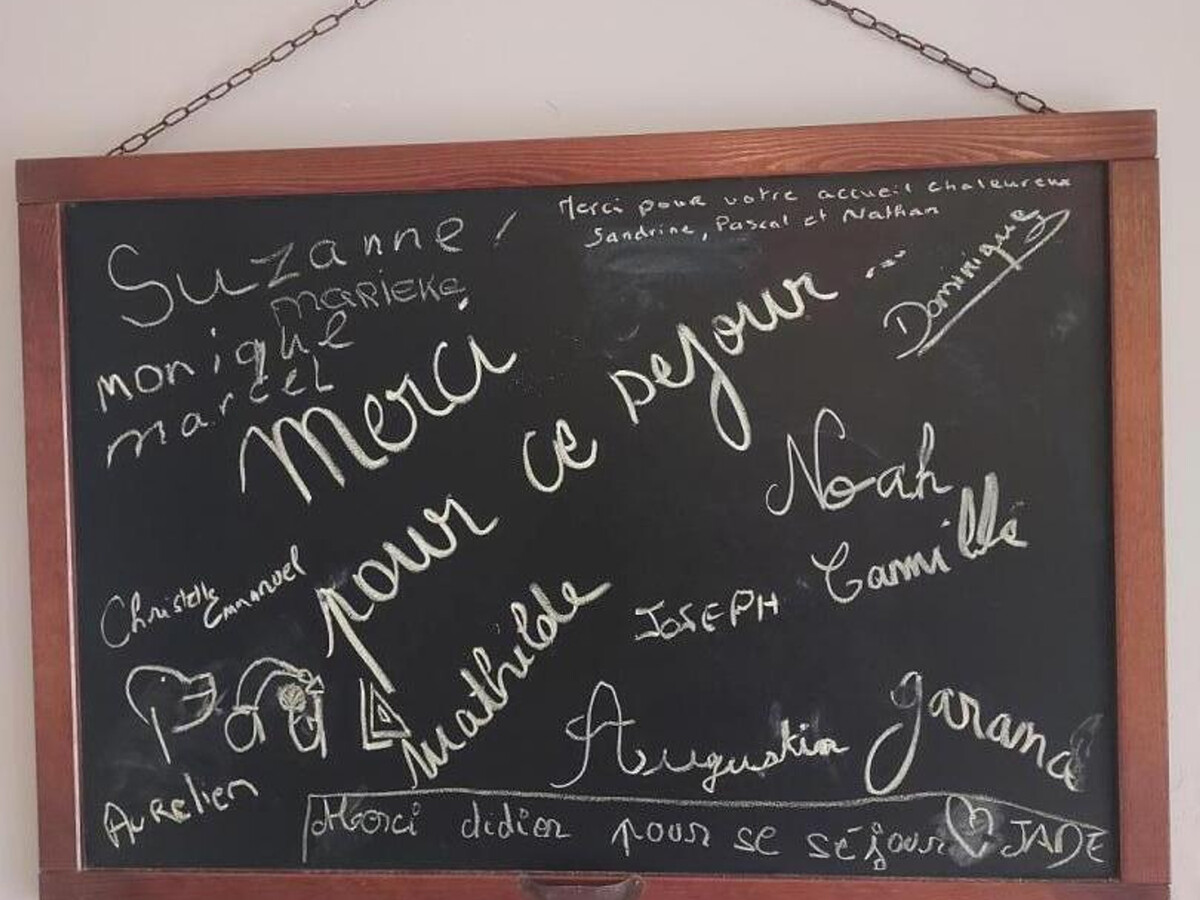 Merci pour votre accueil chaleureux
Sandrine, Pascal et Nathan
Suzanne
MARIEKE
monique
marcel
Dominique
Merci
pour ce sejour ...
Noah
Camille
JOSEPH
Christelle
Emmanuel
Mathilde
Augustin
Aurelien
Merci didier pour se séjour ♡ JADE